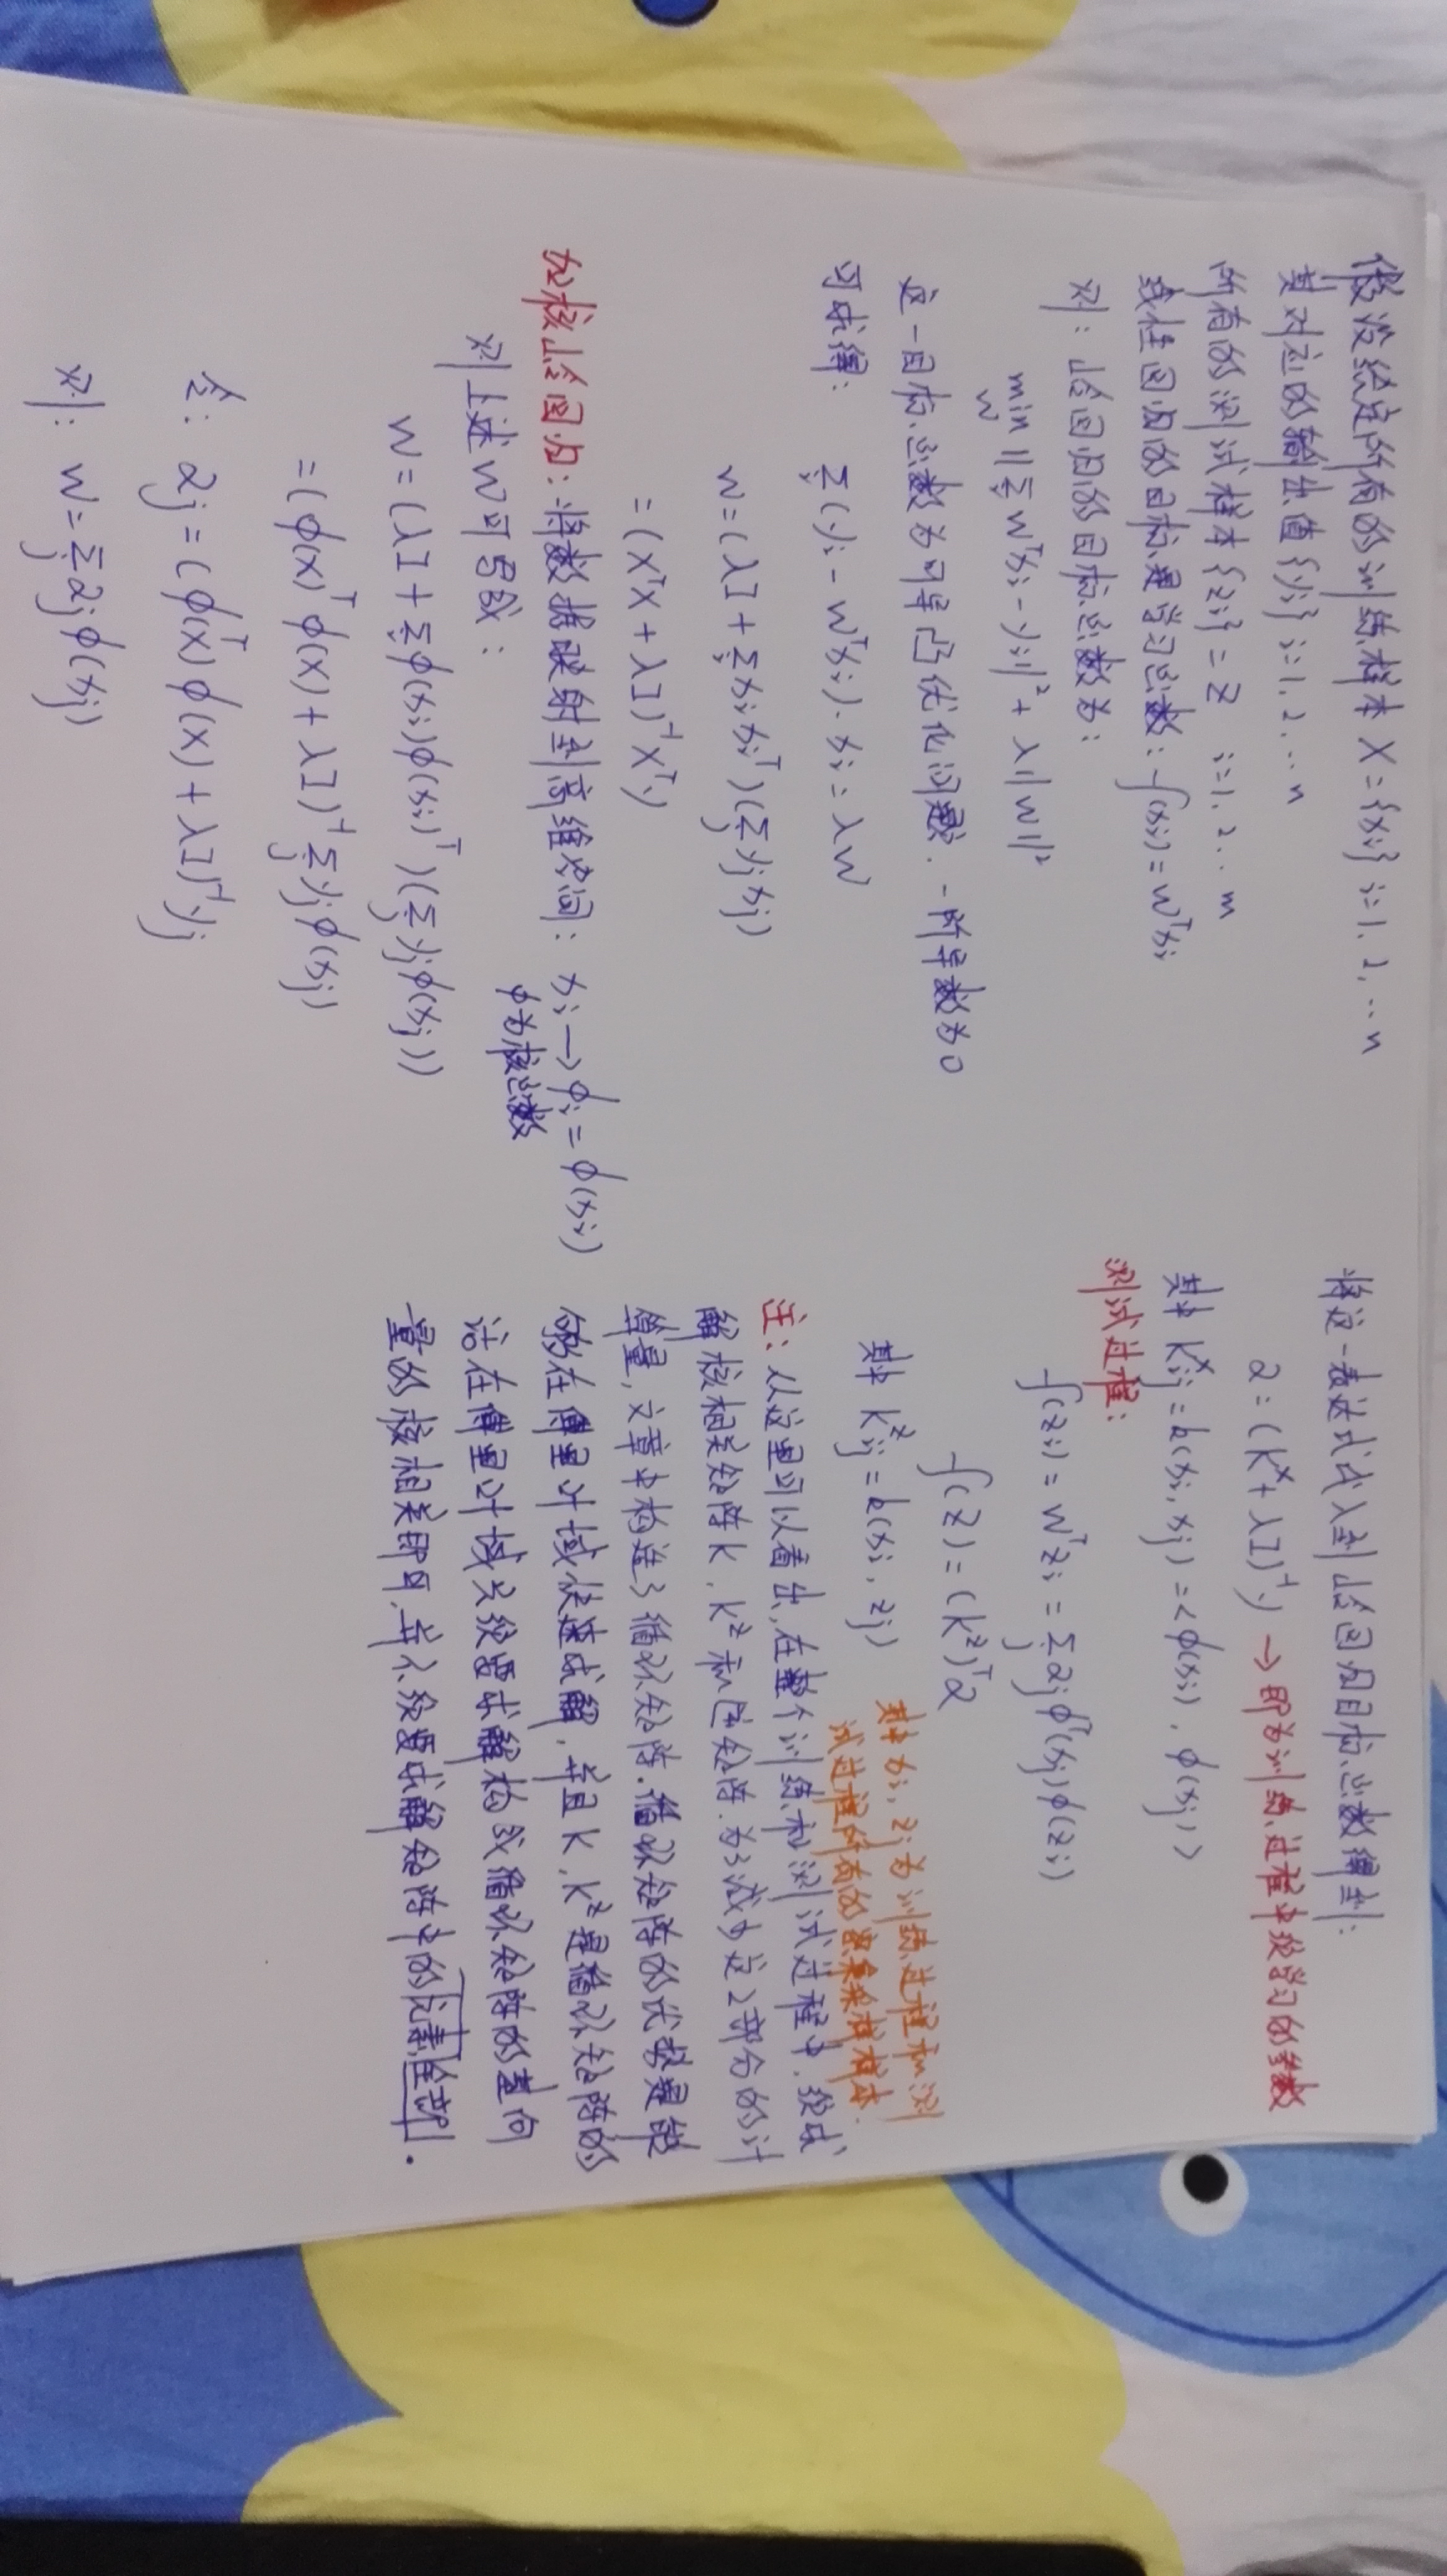 假设给定所有的训练样本 X={xi} i=1, 2, … n
其对应的输出值{yi} i=1, 2, … n
所有的测试样本{zi}=Z i=1, 2… m
线性回归的目标是学习函数: f(xi)=wᵀxi
则: 岭回归的目标函数为:
min ‖Σ wᵀxi - yi‖² + λ‖w‖²
w i
这一目标函数为可导凸优化问题. 一阶导数为0
可求得: Σ(yi - wᵀxi)·xi = λw
i
w=(λI+Σxi xiᵀ)(Σyj xj)
i j
=(XᵀX+λI)⁻¹Xᵀy
加核岭回归: 将数据映射到高维空间: xi→φi=φ(xi)
φ为核函数
则上述w可写成:
w=(λI+Σφ(xi)φ(xi)ᵀ)(Σyjφ(xj))
i j
=(φ(x)ᵀφ(x)+λI)⁻¹Σyjφ(xj)
j
令: αj=(φᵀ(x)φ(x)+λI)⁻¹yj
则: w=Σαjφ(xj)
j
将这一表达式代入到岭回归目标函数得到:
α=(Kˣ+λI)⁻¹y → 即为训练过程中须学习的参数
其中 Kˣij=k(xi, xj)=<φ(xi), φ(xj)>
测试过程:
f(zi)=wᵀzi=Σαjφᵀ(xj)φ(zi)
j
f(z)=(Kᶻ)ᵀα
其中 Kᶻij=k(xi, zj)
其中xi, zj为训练过程和测
试过程所有的密集采样样本.
注: 从这里可以看出, 在整个训练和测试过程中, 须求
解核相关矩阵K, Kᶻ和逆矩阵. 为了减少这2部分的计
算量, 文章中构造了循环矩阵. 循环矩阵的优势是能
够在傅里叶域快速求解, 并且K, Kᶻ是循环矩阵的
话在傅里叶域只须要求解构成循环矩阵的基向
量的核相关即可, 并不须要求解矩阵中的元素全部.